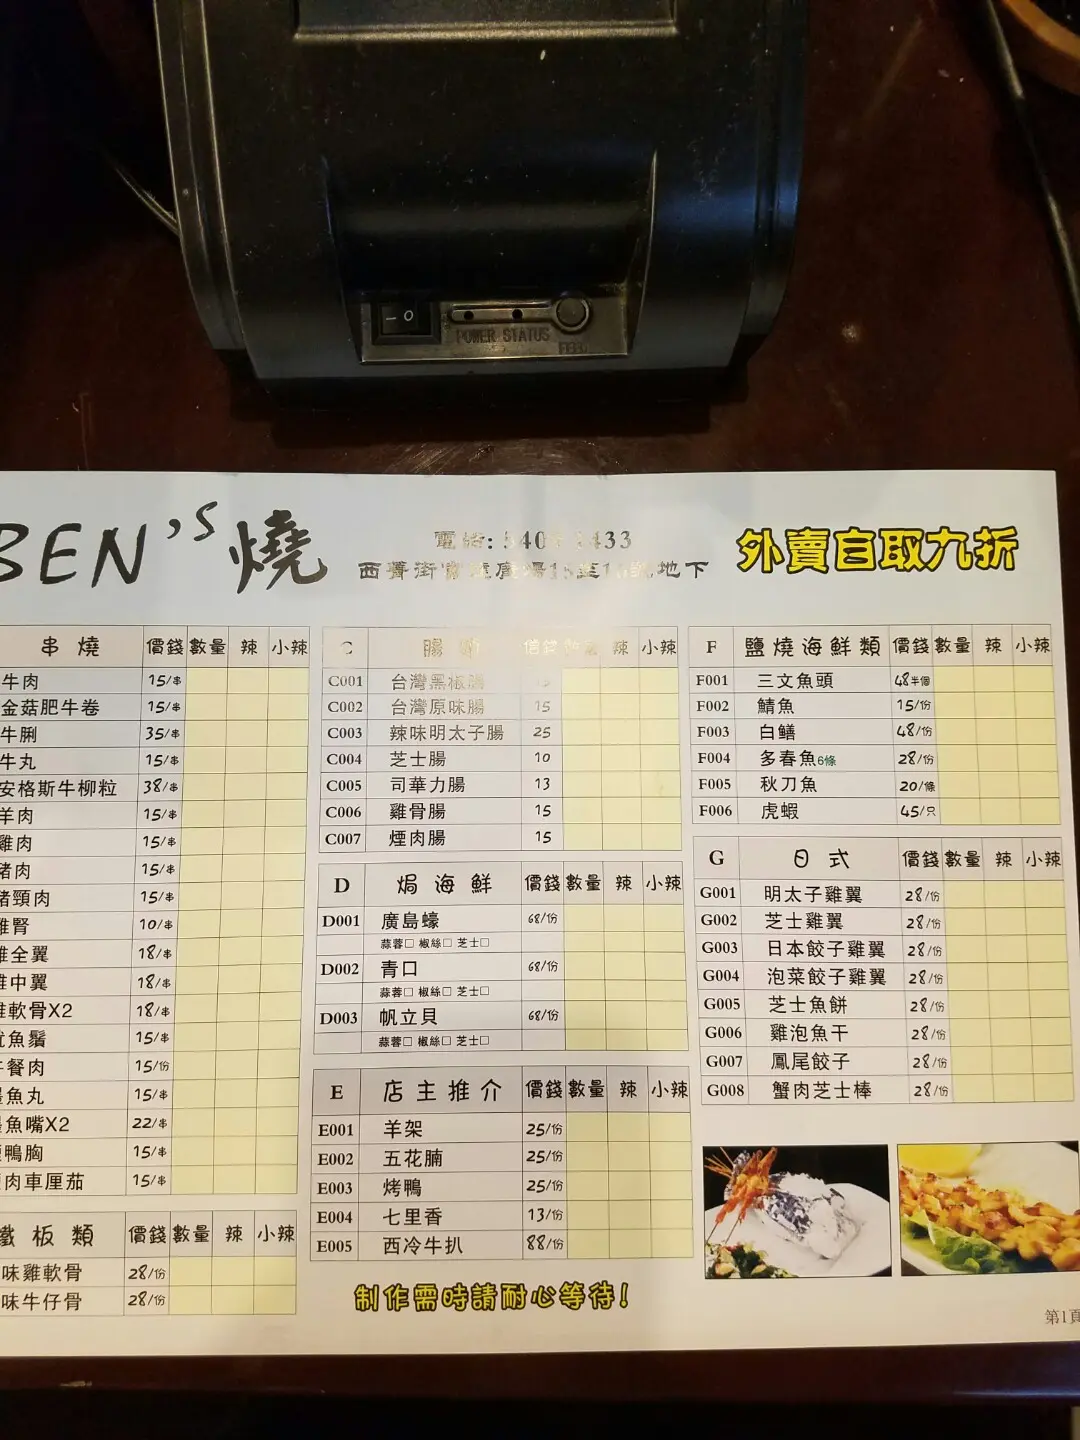 POWER STATUS
BEN'S 燒
電話: 5403 433
外賣自取九折
西菁街 廣場15至1 號地下
串燒 價錢 數量 辣 小辣
牛肉 15/串
金菇肥牛卷 15/串
牛脷 35/串
牛丸 15/串
安格斯牛柳粒 38/串
羊肉 15/串
雞肉 15/串
豬肉 15/串
豬頸肉 15/串
雞腎 10/串
雞全翼 18/串
雞中翼 18/串
雞軟骨X2 18/串
魷魚鬚 15/串
午餐肉 15/份
墨魚丸 15/串
墨魚嘴X2 22/串
鴨胸 15/串
肉車厘茄 15/串
鐵板類 價錢 數量 辣 小辣
味雞軟骨 28/份
味牛仔骨 28/份
C 腸 價錢 數量 辣 小辣
C001 台灣黑椒腸 15
C002 台灣原味腸 15
C003 辣味明太子腸 25
C004 芝士腸 10
C005 司華力腸 13
C006 雞骨腸 15
C007 煙肉腸 15
D 焗海鮮 價錢 數量 辣 小辣
D001 廣島蠔 68/份
蒜蓉□ 椒絲□ 芝士□
D002 青口 68/份
蒜蓉□ 椒絲□ 芝士□
D003 帆立貝 68/份
蒜蓉□ 椒絲□ 芝士□
E 店主推介 價錢 數量 辣 小辣
E001 羊架 25/份
E002 五花腩 25/份
E003 烤鴨 25/份
E004 七里香 13/份
E005 西冷牛扒 88/份
制作需時請耐心等待!
F 鹽燒海鮮類 價錢 數量 辣 小辣
F001 三文魚頭 48半個
F002 鯖魚 15/份
F003 白鱔 48/份
F004 多春魚6條 28/份
F005 秋刀魚 20/條
F006 虎蝦 45/只
G 日式 價錢 數量 辣 小辣
G001 明太子雞翼 28/份
G002 芝士雞翼 28/份
G003 日本餃子雞翼 28/份
G004 泡菜餃子雞翼 28/份
G005 芝士魚餅 28/份
G006 雞泡魚干 28/份
G007 鳳尾餃子 28/份
G008 蟹肉芝士棒 28/份
第1頁